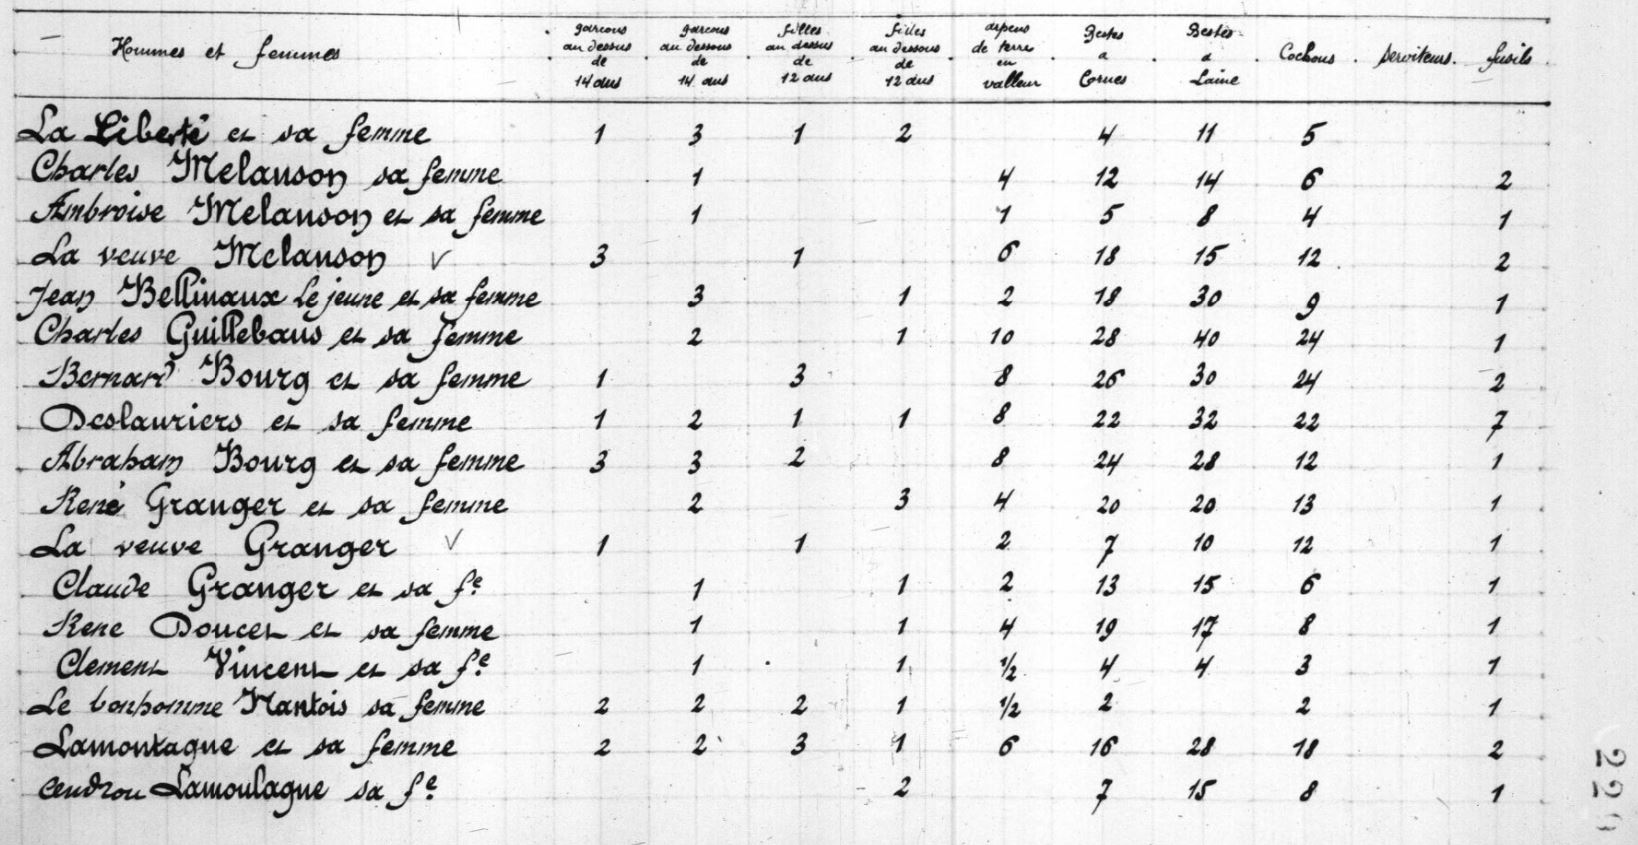 Hommes et femmes garcons au dessus de 14 ans garcons au dessous de 14 ans filles au dessus de 12 ans filles au dessous de 12 ans arpens de terre en valleur Bestes a Cornes Bestes a Laine Cochons serviteurs fusils
La Liberté et sa femme 1 3 1 2 4 11 5
Charles Melanson sa femme 1 4 12 14 6 2
Ambroise Melanson et sa femme 1 1 5 8 4 1
La veuve Melanson √ 3 1 6 18 15 12 2
Jean Bellivaux Le jeune et sa femme 3 1 2 18 30 9 1
Charles Guillebaus et sa femme 2 1 10 28 40 24 1
Bernard Bourg et sa femme 1 3 8 26 30 24 2
Deslauriers et sa femme 1 2 1 1 8 22 32 22 7
Abraham Bourg et sa femme 3 3 2 8 24 28 12 1
René Granger et sa femme 2 3 4 20 20 13 1
La veuve Granger √ 1 1 2 7 10 12 1
Claude Granger et sa fe 1 1 2 13 15 6 1
Rene Doucet et sa femme 1 1 4 19 17 8 1
Clement Vincent et sa fe 1 1 1/2 4 4 3 1
Le bonhomme Nantois sa femme 2 2 2 1 1/2 2 2 1
Lamontagne et sa femme 2 2 3 1 6 16 28 18 2
Lamoulagne sa fe 2 7 15 8 1